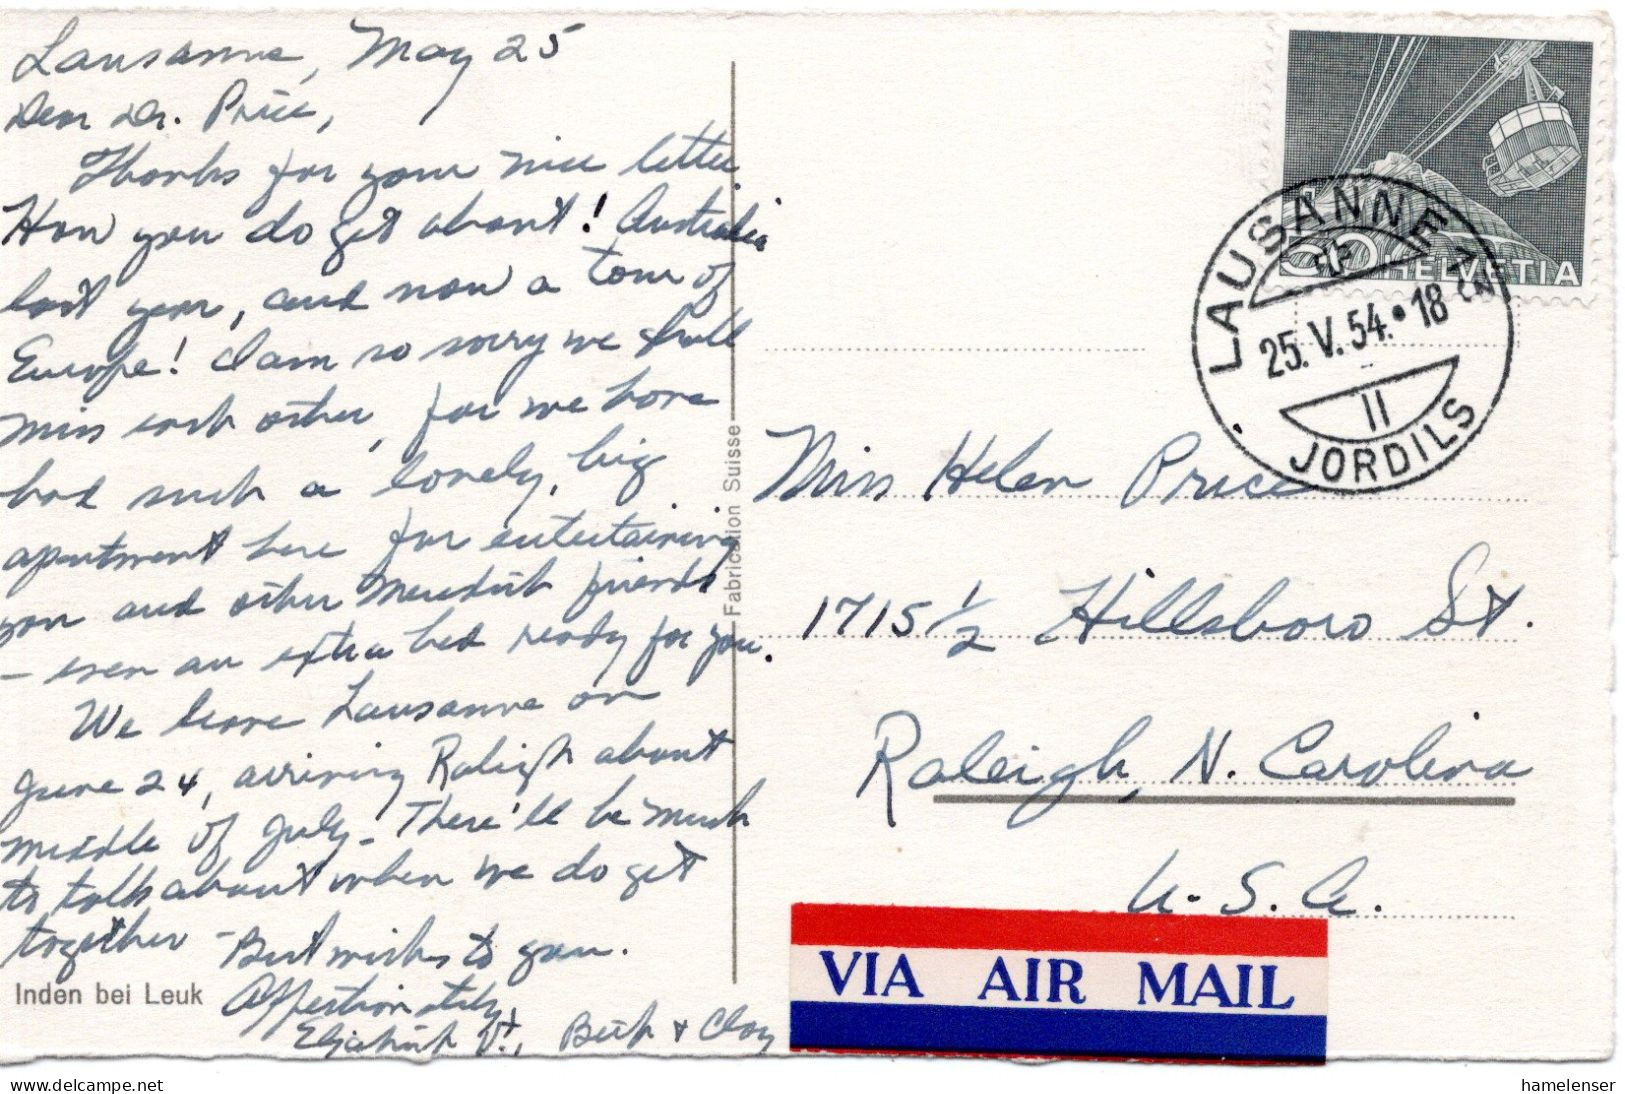 Lausanne, May 25
Dear Dr. Price,
Thanks for your nice letter.
How you do get about! Australia
last year, and now a tour of
Europe! I am so sorry we shall
miss each other, for we have
had such a lovely, big
apartment here for entertaining
you and other Meredith friends
– even an extra bed ready for you.
We leave Lausanne on
June 24, arriving Raleigh about
middle of July – There'll be much
to talk about when we do get
together – Best wishes to you.
Affectionately,
Elizabeth V., Beth & Clay
Inden bei Leuk
Fabrication Suisse
HELVETIA
LAUSANNE
25. V. 54. • 18
II
JORDILS
Miss Helen Price
1715 1/2 Hillsboro St.
Raleigh, N. Carolina
U. S. A.
VIA AIR MAIL
delcampe.net
hamelenser